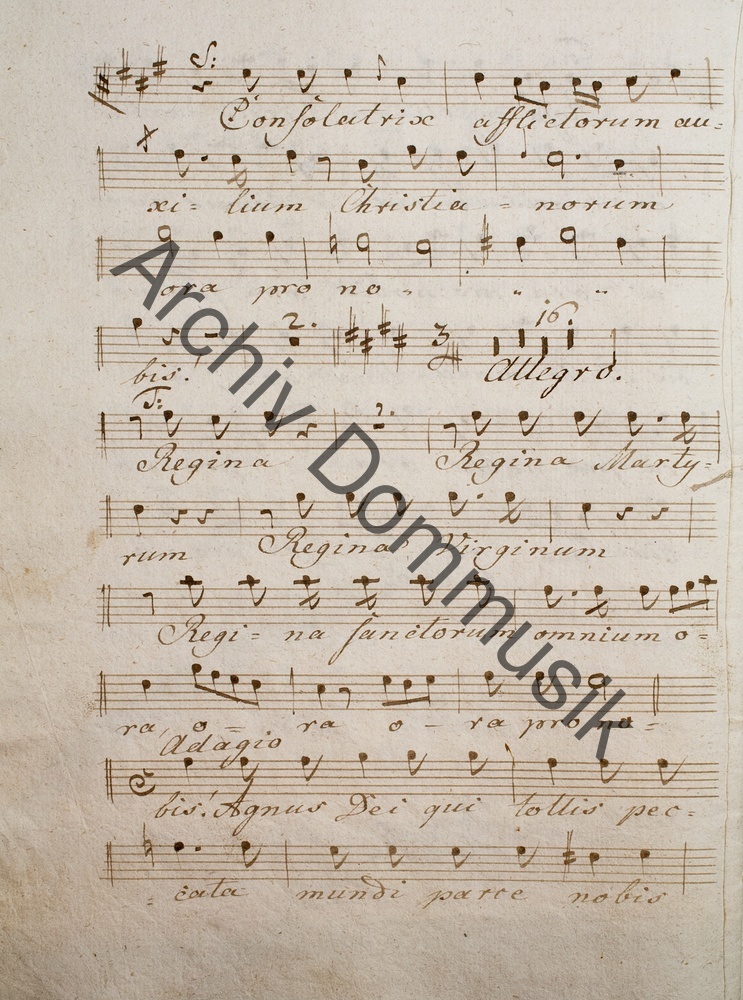 S:
Consolatrix afflictorum au=
xi= lium Christia = norum
ora pro no " " "
2. 3 16.
bis! Allegro.
T:
Regina Regina Marty=
rum Regina Virginum
Regi= na sanctorum omnium o=
ra, o= ra o - ra pro no=
Adagio
bis! Agnus Dei qui tollis pec=
= cata mundi parce nobis
Archiv Dommusik